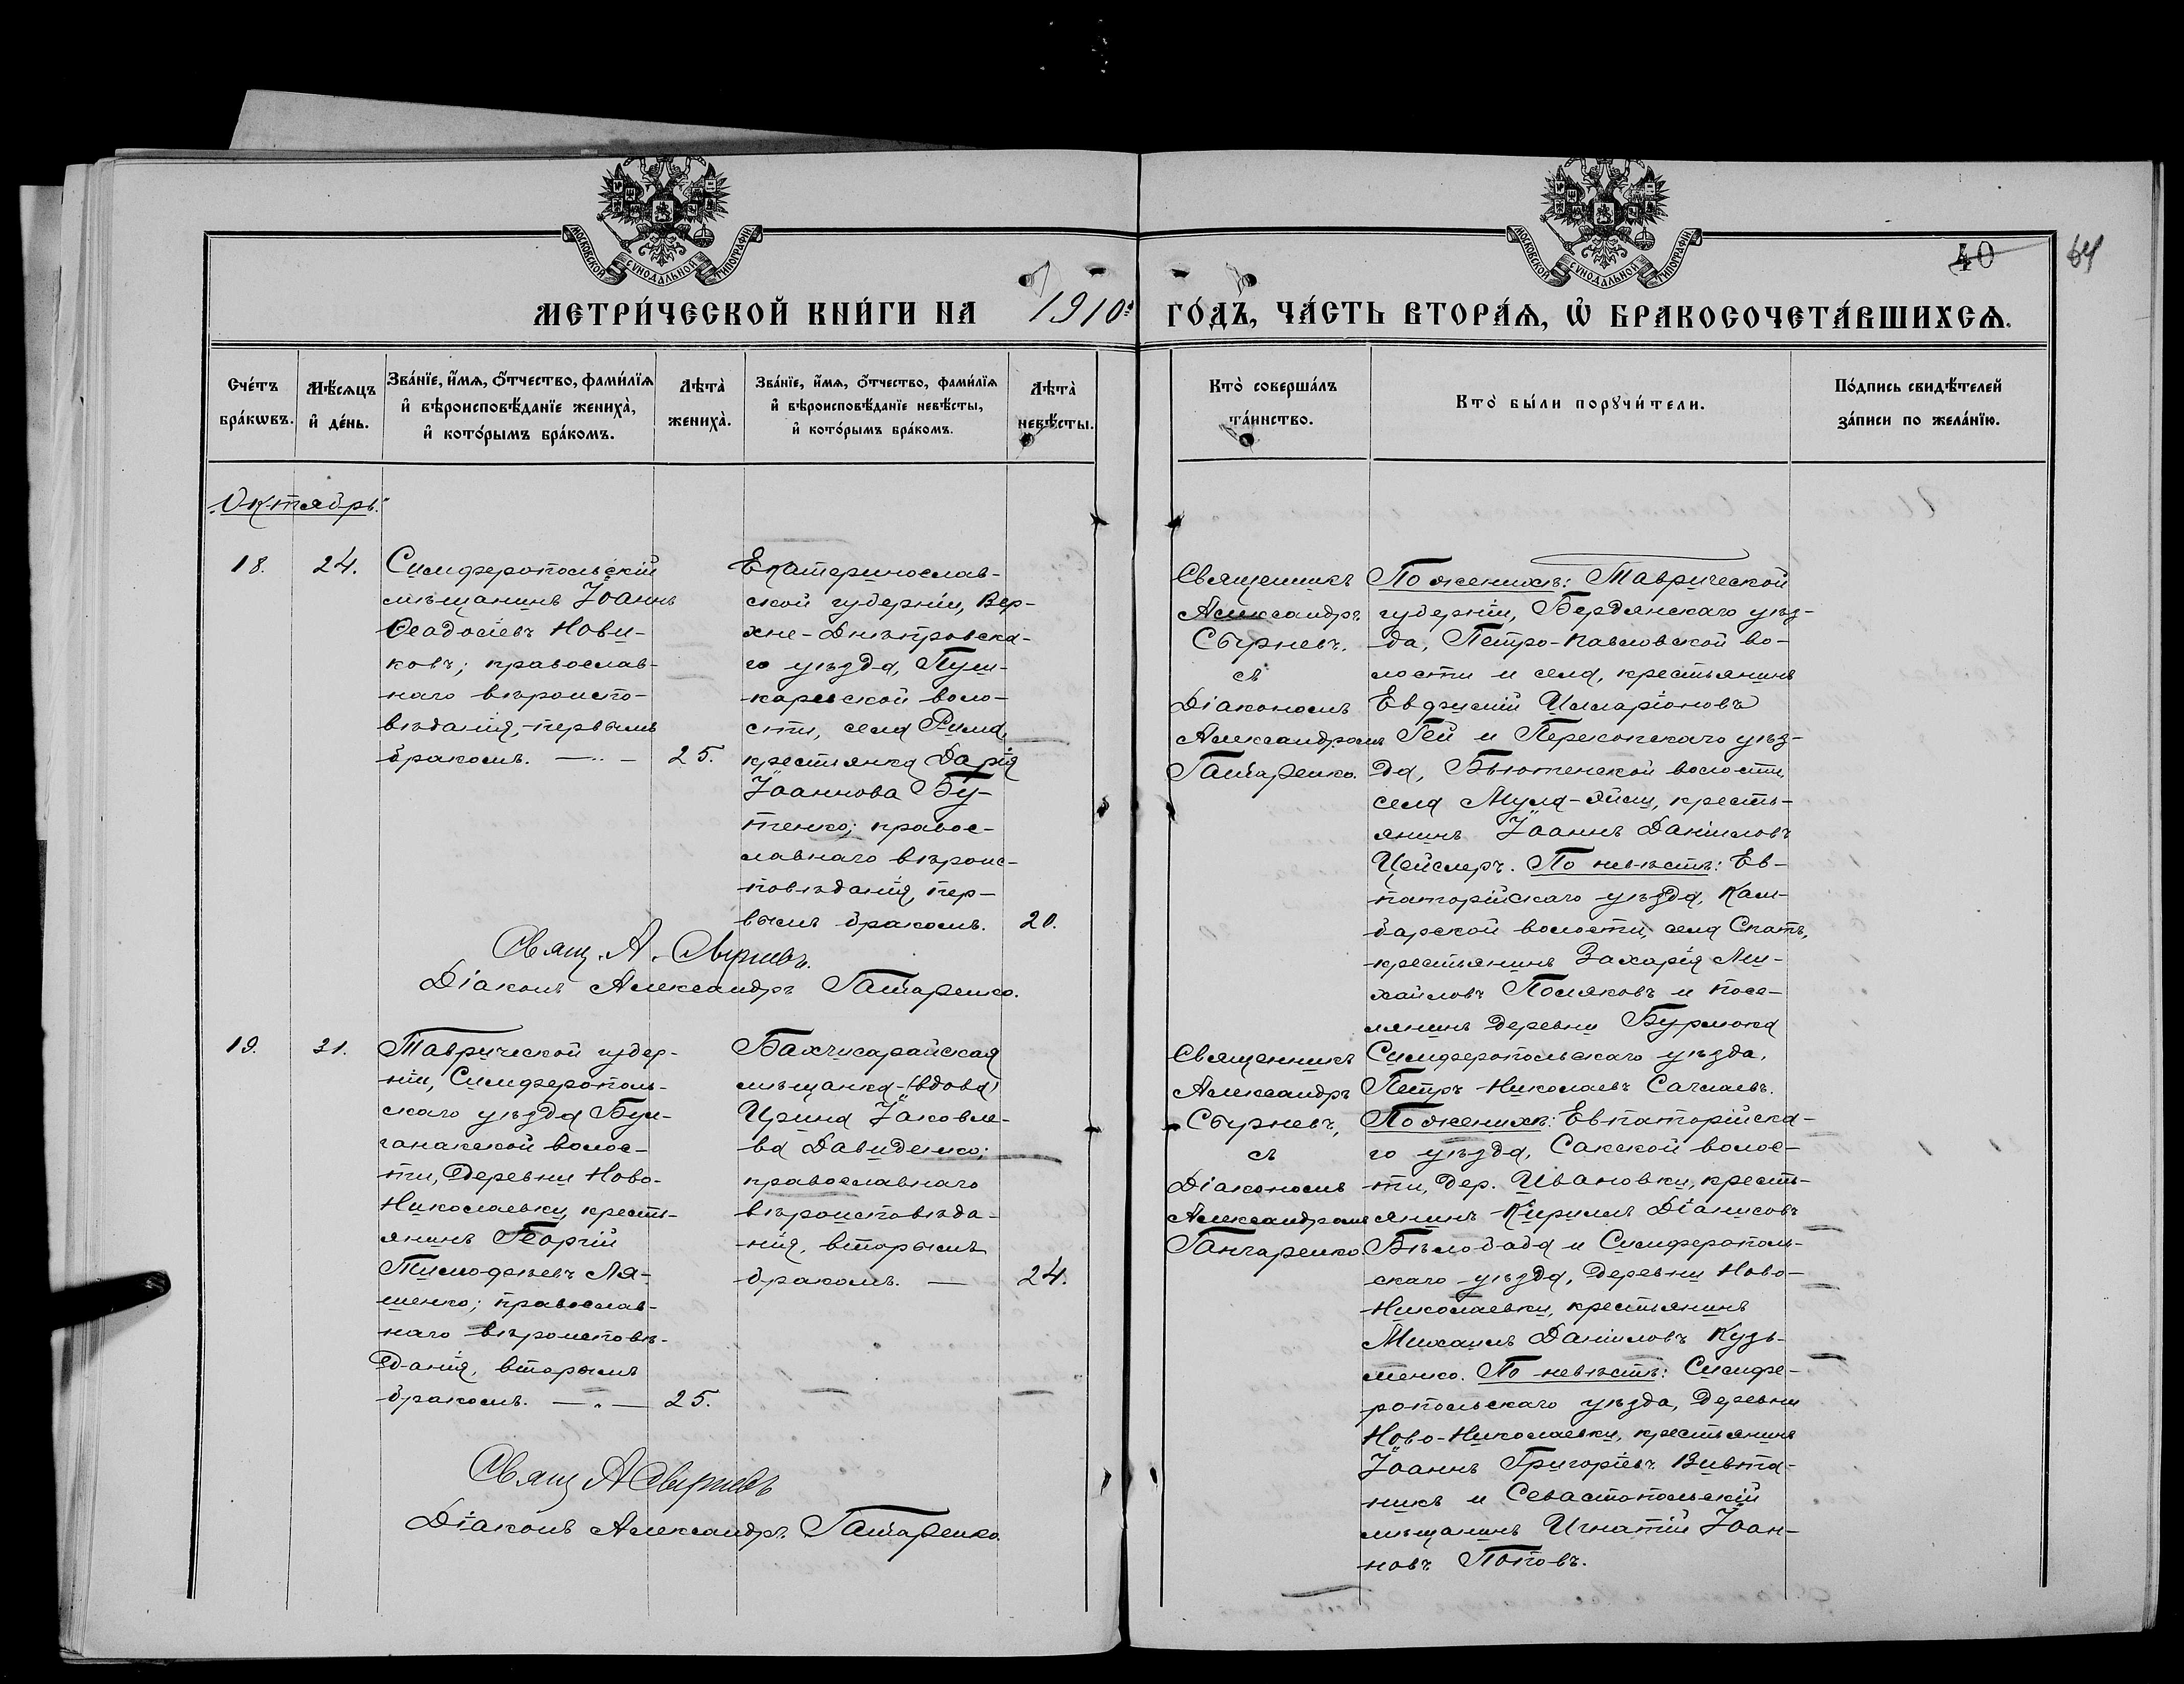 МОСКОВСКОЙ СУНОДАЛЬНОЙ ТИПОГРАФІИ
МОСКОВСКОЙ СУНОДАЛЬНОЙ ТИПОГРАФІИ
40
64
МЕТРИ́ЧЕСКОЙ КНИ́ГИ НА 1910 ГО́ДЪ, ЧА́СТЬ ВТОРА́Ѧ, Ѽ БРАКОСОЧЕТА́ВШИХСѦ.
Сче́тъ бра́кѡвъ.
Мѣ́сѧцъ и҆ де́нь.
Зва́нїе, и҆́мѧ, ѻ҆́тчество, фами́лїѧ
и҆ вѣроисповѣ́данїе жениха̀,
и҆ кото́рымъ бра́комъ.
Лѣта̀ жениха̀.
Зва́нїе, и҆́мѧ, ѻ҆́тчество, фами́лїѧ
и҆ вѣроисповѣ́данїе невѣ́сты,
и҆ кото́рымъ бра́комъ.
Лѣта̀ невѣ́сты.
Кто̀ соверша́лъ
та́инство.
Кто̀ бы́ли порꙋчи́тели.
По́дпись свидѣ́телей
за́писи по жела́нїю.
Октябрь.
18.
24.
Симферопольскій
мѣщанинъ Іоаннъ
Ѳеодосіевъ Нови-
ковъ; православ-
наго вѣроиспо-
вѣданія, первымъ
бракомъ. — 25.
Екатеринослав-
ской губерніи, Вер-
хне-Днѣпровска-
го уѣзда, Пуш-
каревской воло-
сти, села
крестьянка Дарія
Іоаннова Бу-
тенко; правос-
лавнаго вѣроис-
повѣданія, пер-
вымъ бракомъ. 20.
Священникъ
Александръ
Свирневъ.
съ
Діакономъ
Александромъ
Ганчаренко.
По женихѣ: Таврической
губерніи, Бердянскаго уѣз-
да, Петро-Павловской во-
лости и села, крестьянинъ
Евфимій Илларіоновъ
Гей и Перекопскаго уѣз-
да, Бютенской волости,
села Мула- кресть-
янинъ Іоаннъ Даніиловъ
Цейслеръ. По невѣстѣ: Ев-
паторійскаго уѣзда, Кам-
барской волости, села Спатъ,
крестьянинъ Захарія Ми-
хайловъ Поляковъ и посе-
лянинъ деревни
Симферопольскаго уѣзда,
Петръ Николаевъ
Свящ. А. Свирневъ.
Діаконъ Александръ Ганчаренко.
19.
31.
Таврической губер-
ніи, Симферополь-
скаго уѣзда Бул-
ганакской волос-
ти, деревни Ново-
Николаевки, кресть-
янинъ Георгій
Тимофѣевъ Ля-
шенко; православ-
наго вѣроисповѣ-
данія, вторымъ
бракомъ. — 25.
Бахчисарайская
мѣщанка (вдова)
Ирина Іаковле-
ва Давиденко;
православнаго
вѣроисповѣда-
нія, вторымъ
бракомъ. — 24.
Священникъ
Александръ
Свирневъ,
съ
Діакономъ
Александромъ
Ганчаренко.
По женихѣ: Евпаторійска-
го уѣзда, Сакской волос-
ти, дер. Ивановки, кресть-
янинъ Кириллъ Діанисовъ
Бѣлобаба и Симферополь-
скаго уѣзда, деревни Ново-
Николаевки, крестьянинъ
Михаилъ Даніиловъ Кузь-
менко. По невѣстѣ: Симфе-
ропольскаго уѣзда, деревни
Ново-Николаевки, крестьянинъ
Іоаннъ Григоріевъ Вивта-
никъ и Севастопольскій
мѣщанинъ Игнатій Іоан-
новъ Поповъ.
Свящ. А. Свирневъ
Діаконъ Александръ Ганчаренко.